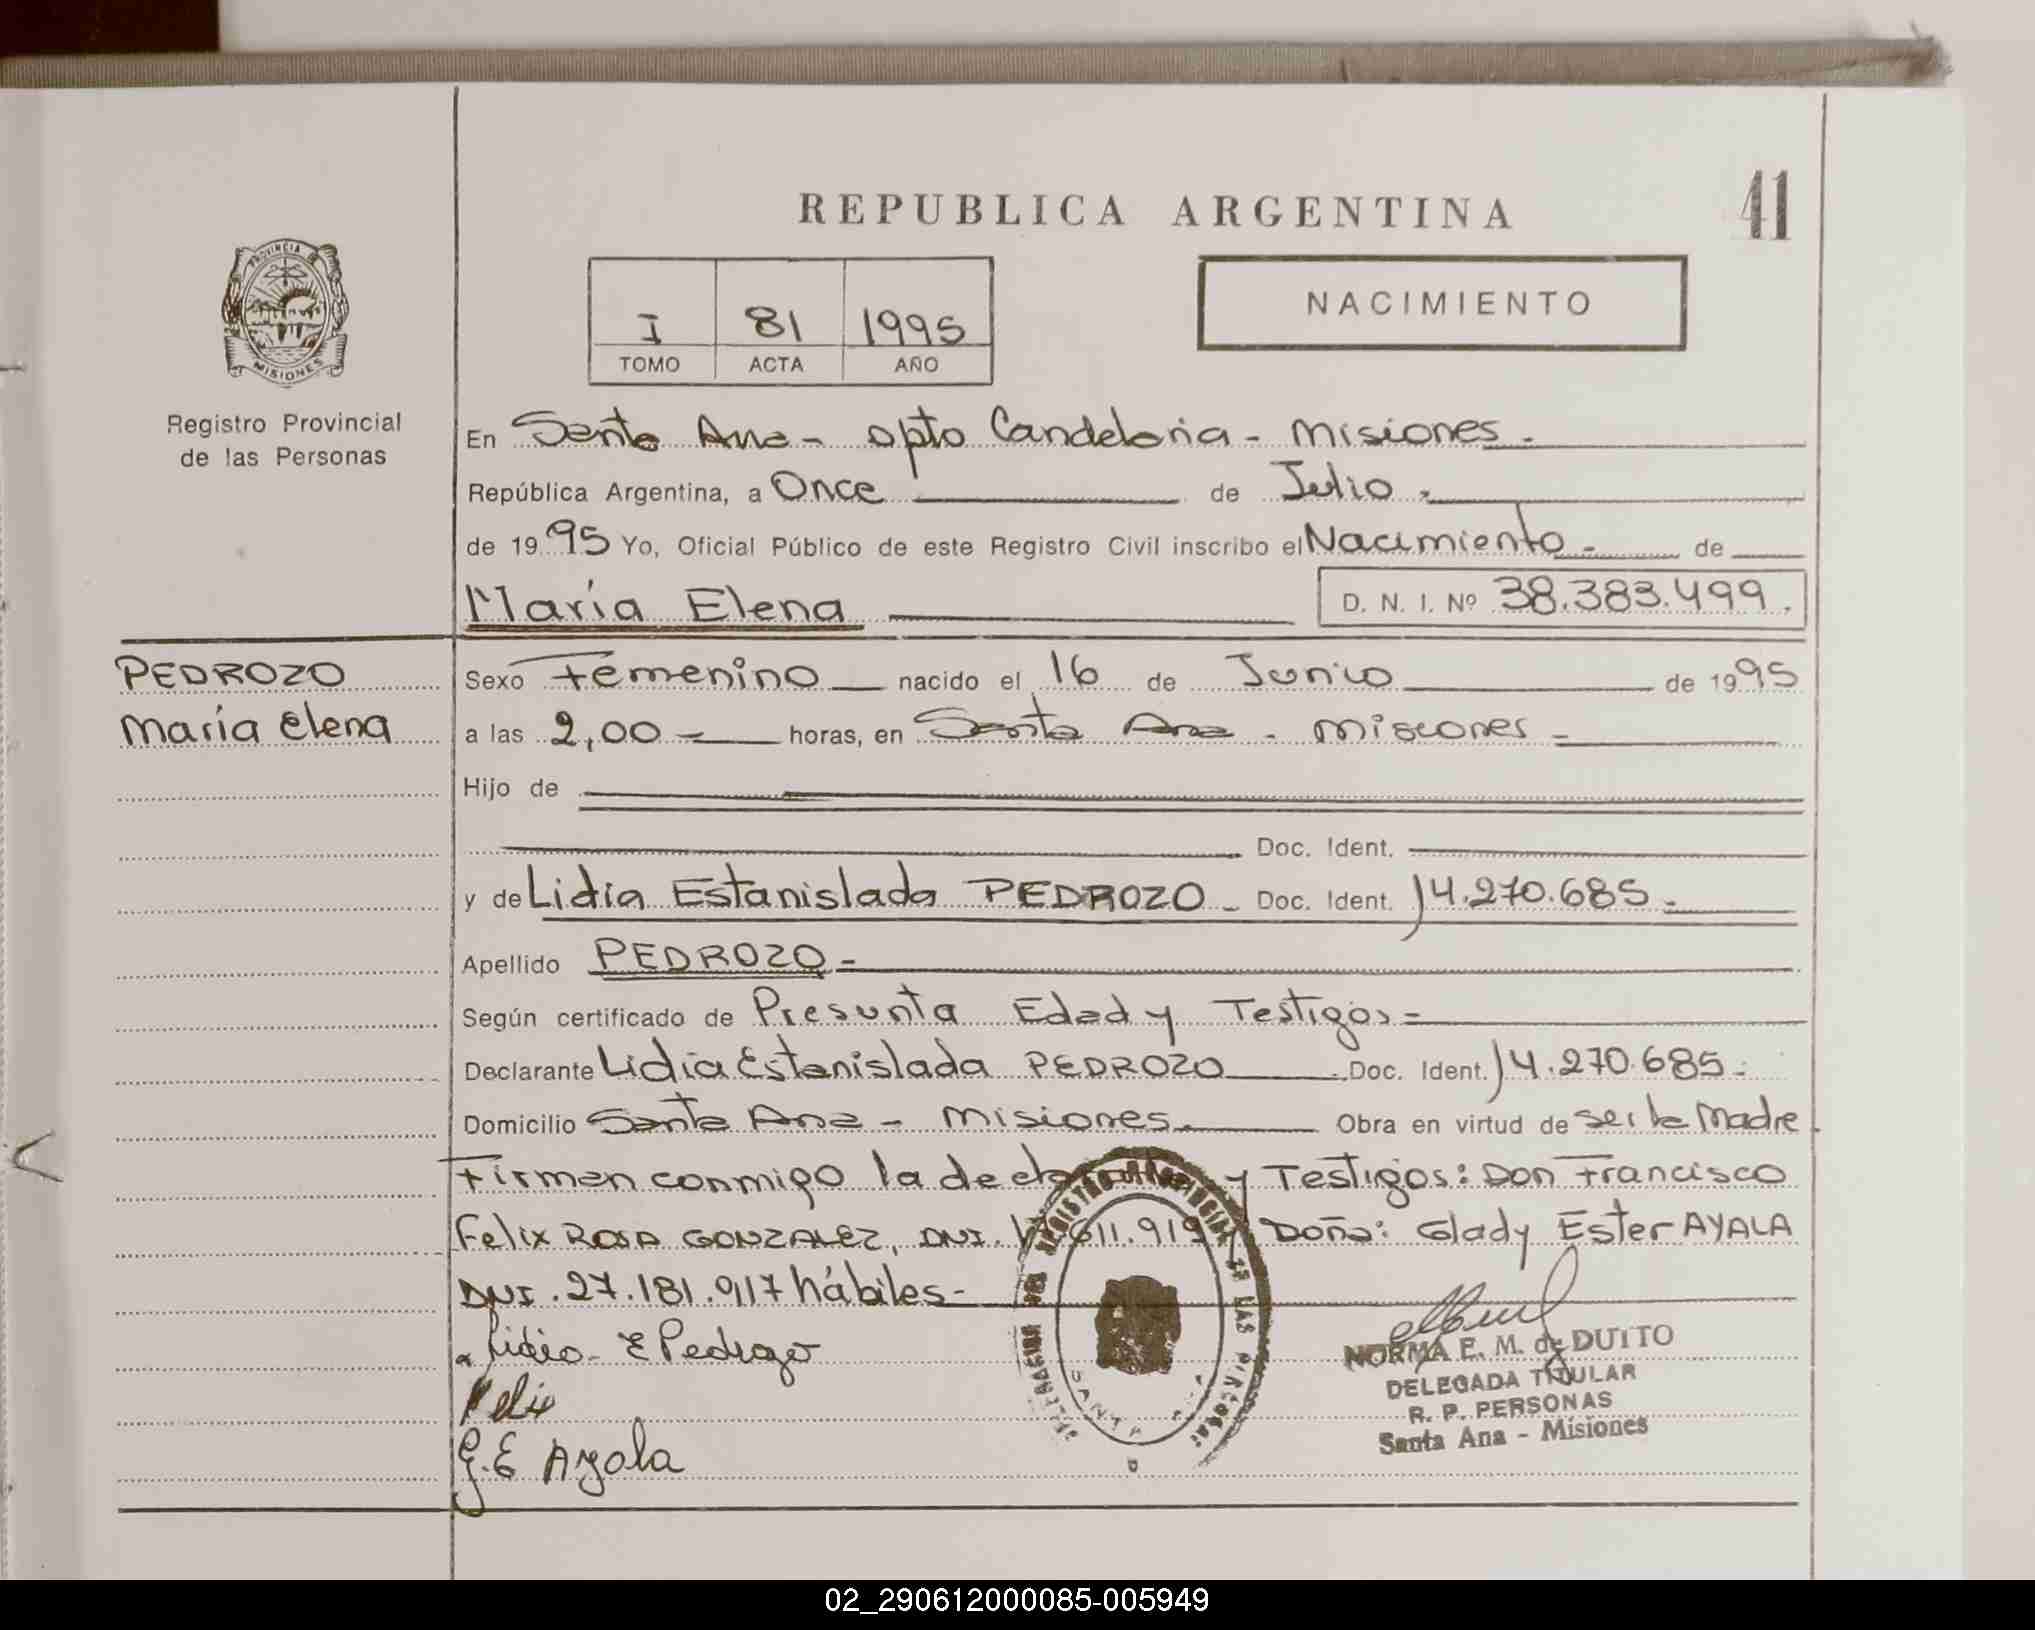 REPUBLICA ARGENTINA
41
PROVINCIA DE
MISIONES
Registro Provincial
de las Personas
I 81 1995
TOMO ACTA AÑO
NACIMIENTO
En Santa Ana - Dpto Candelaria - Misiones -
República Argentina, a Once de Julio -
de 1995 Yo, Oficial Público de este Registro Civil inscribo el Nacimiento - de
María Elena D. N. I. Nº 38.383.499.
PEDROZO
María Elena
Sexo Femenino nacido el 16 de Junio de 1995
a las 2,00 - horas, en Santa Ana - Misiones -
Hijo de
Doc. Ident.
y de Lidia Estanislada PEDROZO - Doc. Ident. 14.270.685 -
Apellido PEDROZO -
Según certificado de Presunta Edad y Testigos -
Declarante Lidia Estanislada PEDROZO Doc. Ident. 14.270.685 -
Domicilio Santa Ana - Misiones. Obra en virtud de ser la Madre
Firman conmigo la declarante y Testigos: Don Francisco
Felix ROSA GONZALEZ, DNI. 611.919 Doña: Glady Ester AYALA
DNI. 27.181.917 hábiles -
Lidia E Pedrozo
Felix
G.E Ayala
SANTA ANA
NORMA E. M. de DUITO
DELEGADA TITULAR
R. P. PERSONAS
Santa Ana - Misiones
02_290612000085-005949